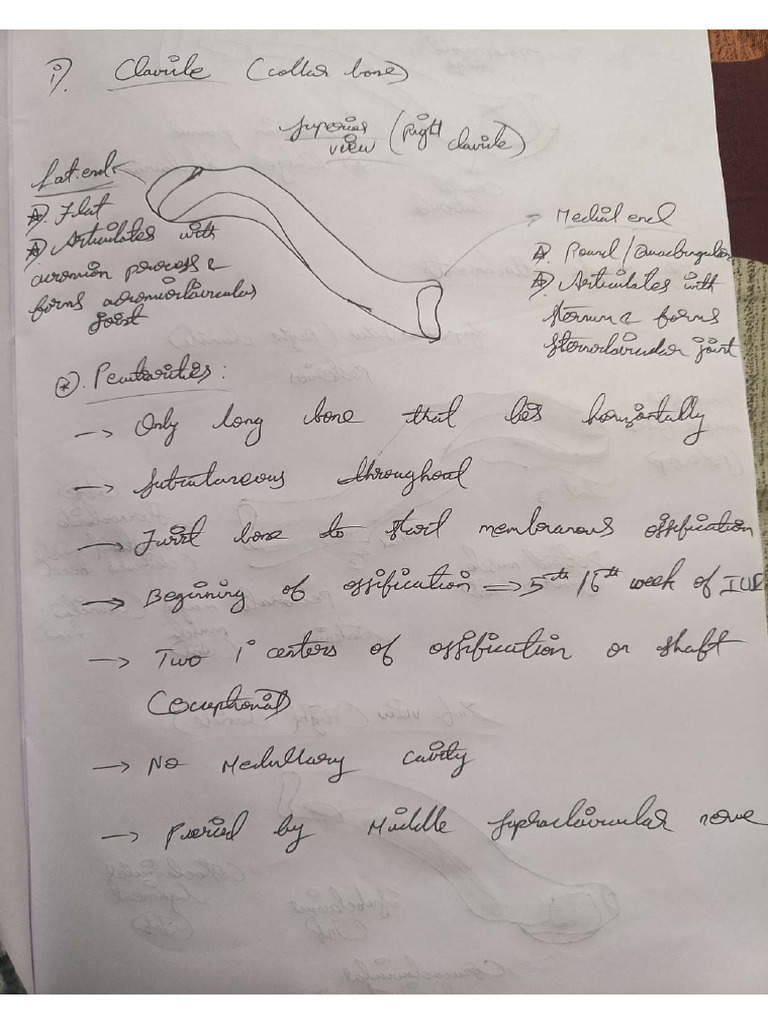 i). Clavicle (collar bone)
superior view (Right clavicle)
Lat. end
Flat
Articulates with
acromion process &
forms acromioclavicular
joint
Medial end
Round / Quadrangular
Articulates with
sternum & forms
sternoclavicular joint
Peculiarities :
→ Only long bone that lies horizontally
→ Subcutaneous throughout
→ First bone to start membranous ossification
→ Beginning of ossification → 5th / 6th week of IUL
→ Two 1° centers of ossification on shaft
→ No Medullary cavity
→ Pierced by Middle supraclavicular nerve